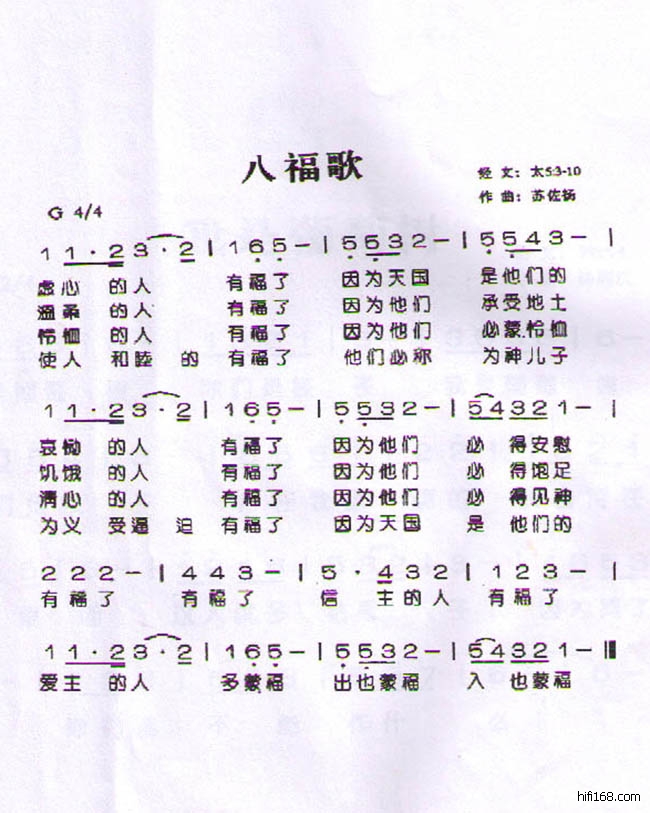 八福歌
经文：太5:3-10
作曲：苏佐扬
G 4/4
1 1·2 3·2 | 1 6 5 - | 5 5 3 2 - | 5 5 4 3 - |
虚心 的人 有福了 因为天国 是他们的
温柔 的人 有福了 因为他们 承受地土
怜恤 的人 有福了 因为他们 必蒙怜恤
使人 和睦 的 有福了 他们必称 为神儿子
1 1·2 3·2 | 1 6 5 - | 5 5 3 2 - | 5 4 3 2 1 - |
哀恸 的人 有福了 因为他们 必 得安慰
饥饿 的人 有福了 因为他们 必 得饱足
清心 的人 有福了 因为他们 必 得见神
为义 受逼 迫 有福了 因为天国 是 他们的
2 2 2 - | 4 4 3 - | 5·4 3 2 | 1 2 3 - |
有福了 有福了 信 主的人 有福了
1 1·2 3·2 | 1 6 5 - | 5 5 3 2 - | 5 4 3 2 1 - ||
爱主 的人 多蒙福 出也蒙福 入 也蒙福
hifi168.com